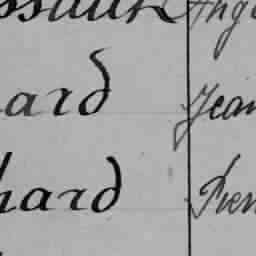 ssault Ange
ard Jean
hard Pierr